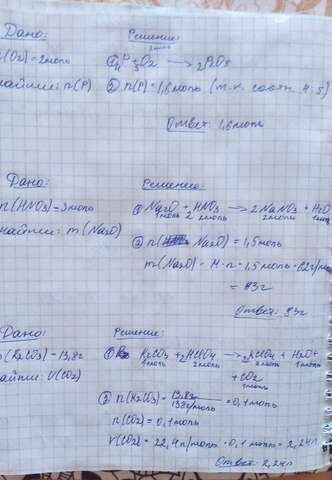 Дано:
Решение:
(O2)=2моль
2моль
① 4P+5O2 → 2P2O5
найти: n(P)
② n(P)=1,6моль (т.к. соотн. 4:5)
Ответ: 1,6моль
Дано:
Решение:
n(HNO3)=3моль
① Na2O + 2HNO3 → 2NaNO3 + H2O
1моль 2моль 2моль 1моль
найти: m(Na2O)
② n(Na2O)=1,5моль
m(Na2O)=M·n=1,5моль·62г/моль
=93г
Ответ: 93г
Дано:
Решение:
(K2CO3)=13,8г
① K2CO3+2HClO4 → 2KClO4 + H2O+
1моль 2моль 2моль 1моль
найти: V(CO2)
+CO2
1моль
② n(K2CO3)=13,8г/138г/моль=0,1моль
n(CO2)=0,1моль
V(CO2)=22,4л/моль·0,1моль=2,24л
Ответ: 2,24л